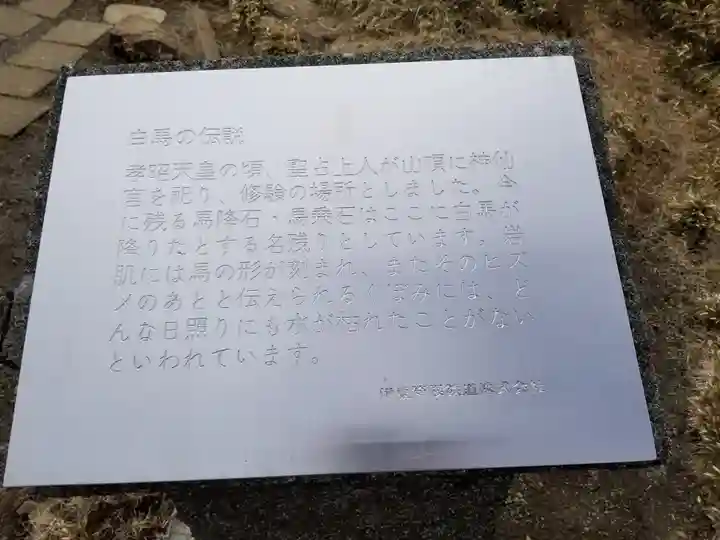 白馬の伝説
孝昭天皇の頃、聖占上人が山頂に神仙
宮を祀り、修験の場所としました。今
に残る馬降石・馬乗石はここに白馬が
降りたとする名残りとしています。岩
肌には馬の形が刻まれ、またそのヒズ
メのあとと伝えられるくぼみには、ど
んな日照りにも水が枯れたことがない
といわれています。
伊豆箱根鉄道株式会社